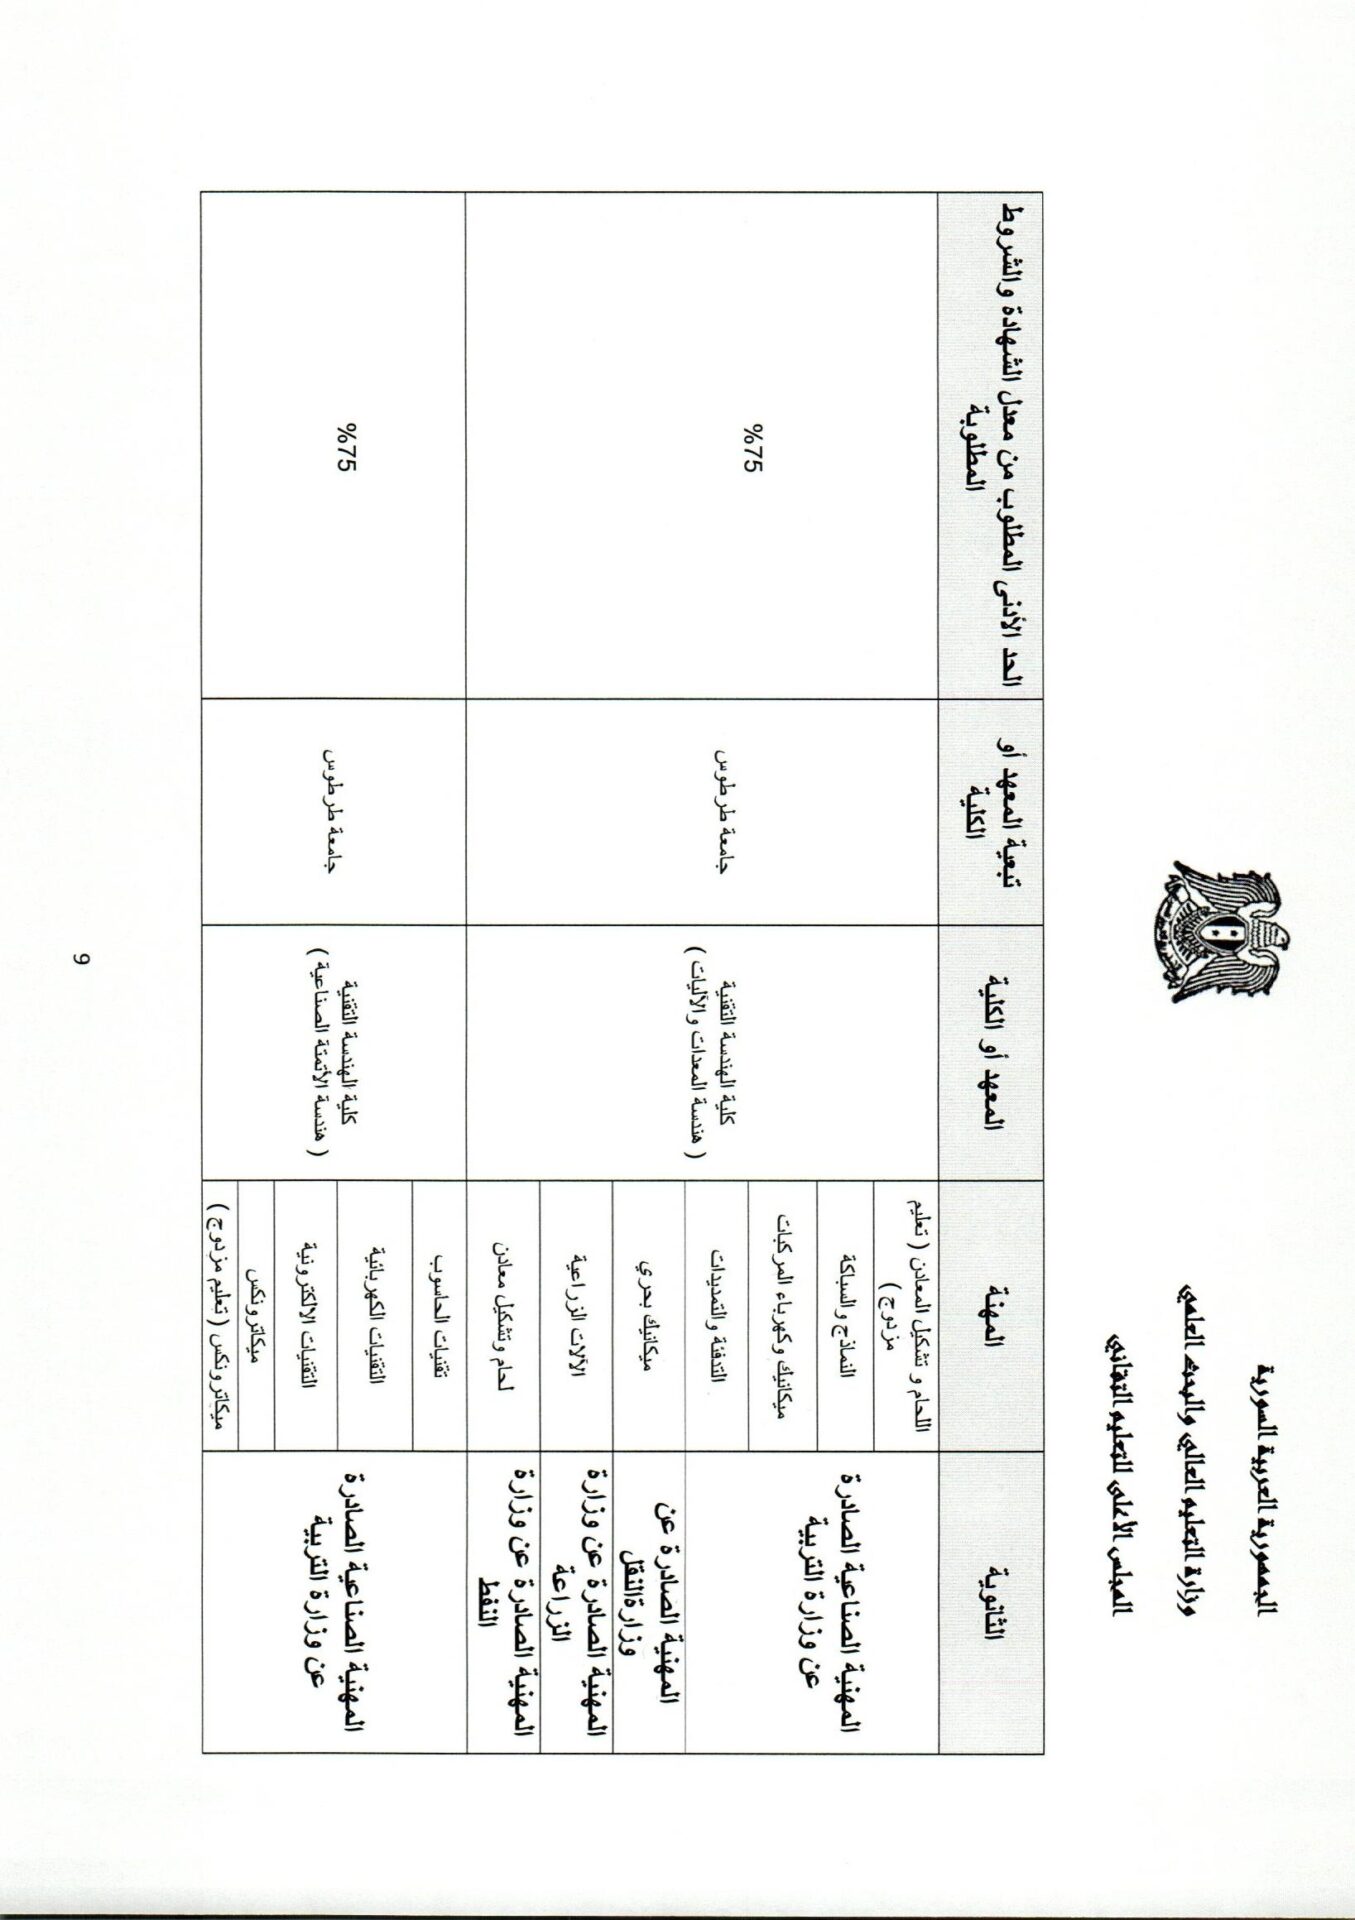 الجمهورية العربية السورية
وزارة التعليم العالي والبحث العلمي
المجلس الأعلى للتعليم التقاني
الثانوية
المهنة
المعهد أو الكلية
تبعية المعهد أو
الكلية
الحد الأدنى المطلوب من معدل الشهادة والشروط
المطلوبة
المهنية الصناعية الصادرة
عن وزارة التربية
اللحام و تشكيل المعادن ( تعليم
مزدوج )
النماذج والسباكة
ميكانيك وكهرباء المركبات
التدفئة والتمديدات
المهنية الصادرة عن
وزارةالنقل
ميكانيك بحري
المهنية الصادرة عن وزارة
الزراعة
الآلات الزراعية
المهنية الصادرة عن وزارة
النفط
لحام وتشكيل معادن
كلية الهندسة التقنية
( هندسة المعدات والآليات )
جامعة طرطوس
%75
المهنية الصناعية الصادرة
عن وزارة التربية
تقنيات الحاسوب
التقنيات الكهربائية
التقنيات الالكترونية
ميكاترونكس
ميكاترونكس ( تعليم مزدوج )
كلية الهندسة التقنية
( هندسة الأتمتة الصناعية )
جامعة طرطوس
%75
9